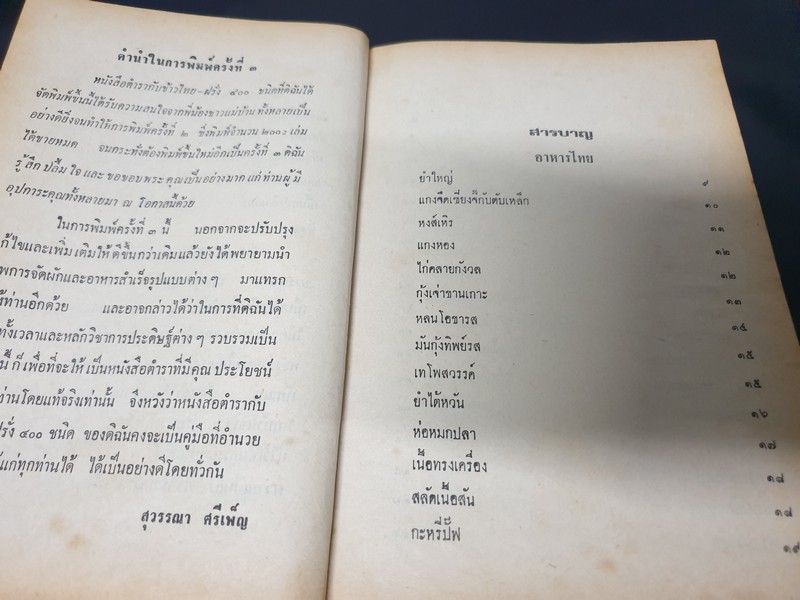 คำนำในการพิมพ์ครั้งที่ ๓
หนังสือตำรากับข้าวไทย-ฝรั่ง ๔๐๐ ชนิดที่ดิฉันได้
จัดพิมพ์ขึ้นนี้ได้รับความสนใจจากพี่น้องชาวแม่บ้าน ทั้งหลายเป็น
อย่างดียิ่งจนทำให้การพิมพ์ครั้งที่ ๒ ซึ่งพิมพ์จำนวน ๒๐๐๐ เล่ม
ได้ขายหมด จนกระทั่งต้องพิมพ์ขึ้นใหม่อีกเป็นครั้งที่ ๓ ดิฉัน
รู้สึก ปลื้ม ใจ และ ขอขอบ พระ คุณเป็นอย่างมาก แก่ ท่าน ผู้ มี
อุปการะคุณทั้งหลายมา ณ โอกาสนี้ด้วย
ในการพิมพ์ครั้งที่ ๓ นี้ นอกจากจะปรับปรุง
ก้ไขและเพิ่ม เติมให้ ดีขึ้นกว่าเดิม แล้วยังได้พยายามนำ
พการจัดผักและอาหารสำเร็จรูปแบบต่าง ๆ มาแทรก
ร้ท่านอีกด้วย และอาจกล่าวได้ว่าในการที่ดิฉันได้
ทั้งเวลาและหลักวิชาการประดิษฐ์ต่าง ๆ รวบรวมเป็น
นี้ ก็ เพื่อที่จะให้ เป็นหนังสือตำราที่มีคุณ ประโยชน์
ท่านโดยแท้จริงเท่านั้น จึงหวังว่าหนังสือตำรากับ
ฝรั่ง ๔๐๐ ชนิด ของดิฉันคงจะเป็นคู่มือที่อำนวย
แก่ทุกท่านได้ ได้เป็นอย่างดีโดยทั่วกัน
สุวรรณา ศรีเพ็ญ
สารบาญ
อาหารไทย
ยำใหญ่ ๙
แกงจืดเซี่ยงจี๊กับตับเหล็ก ๑๐
หงส์เหิร ๑๑
แกงหอง ๑๒
ไก่คลายกังวล ๑๒
กุ้งเจ่าชานเกาะ ๑๓
หลนโอชารส ๑๔
มันกุ้งทิพย์รส ๑๕
เทโพสวรรค์ ๑๕
ยำไต้หวัน ๑๖
ห่อหมกปลา ๑๗
เนื้อทรงเครื่อง ๑๘
สลัดเนื้อสัน ๑๘
กะหรี่ปั๊ฟ ๑๙